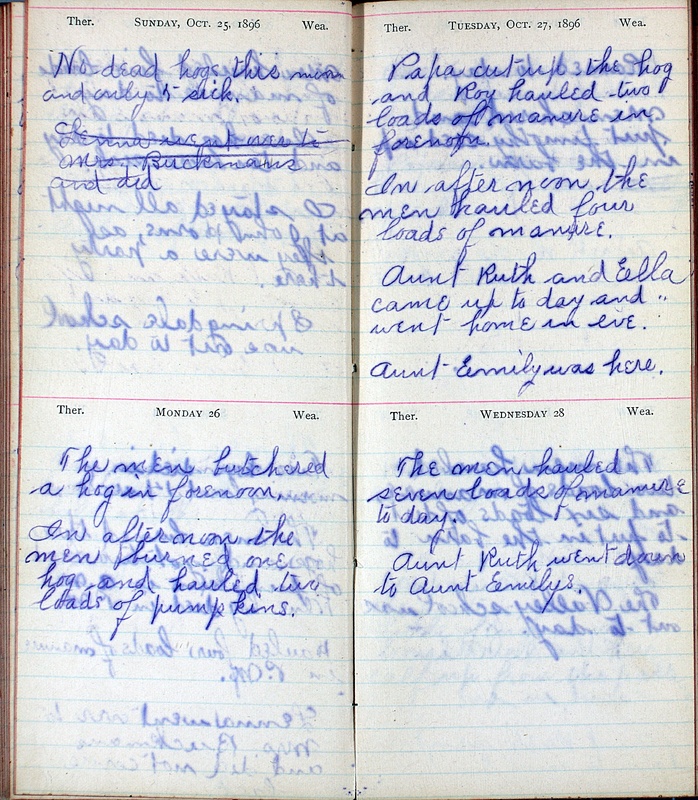 Ther. SUNDAY, OCT. 25, 1896 Wea.
No dead hogs this morn
and only 5 sick.
Lenna went over to
Mrs. Buckmans
and did
Ther. MONDAY 26 Wea.
The men butchered
a hog in forenoon.
In afternoon the
men burned one
hog and hauled two
loads of pumpkins.
Ther. TUESDAY, OCT. 27, 1896 Wea.
Papa cut up the hog
and Roy hauled two
loads of manure in
forenoon.
In afternoon the
men hauled four
loads of manure.
Aunt Ruth and Ella
came up to day and
went home in eve.
Aunt Emily was here.
Ther. WEDNESDAY 28 Wea.
The men hauled
seven loads of manure
to day.
Aunt Ruth went down
to Aunt Emilys.